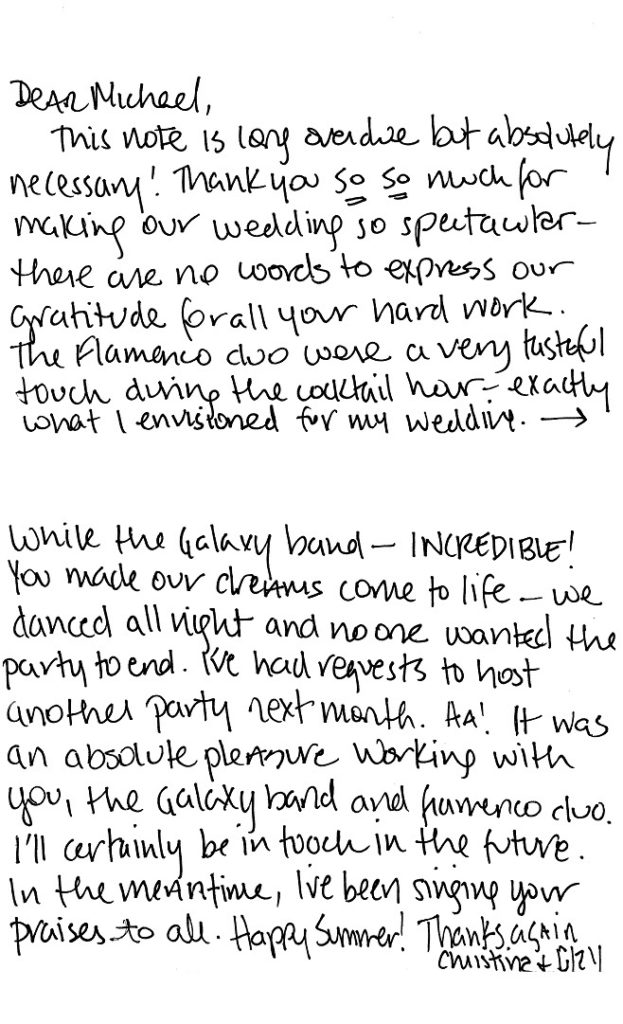 Dear Michael,
This note is long overdue but absolutely
necessary! Thank you so so much for
making our wedding so spectacular –
there are no words to express our
gratitude for all your hard work.
The Flamenco duo were a very tasteful
touch during the cocktail hour – exactly
what I envisioned for my wedding. →
While the Galaxy band – INCREDIBLE!
You made our dreams come to life – we
danced all night and no one wanted the
party to end. I've had requests to host
another party next month. HA! It was
an absolute pleasure working with
you, the Galaxy band and flamenco duo.
I'll certainly be in touch in the future.
In the meantime, I've been singing your
praises to all. Happy Summer! Thanks again
Christine +